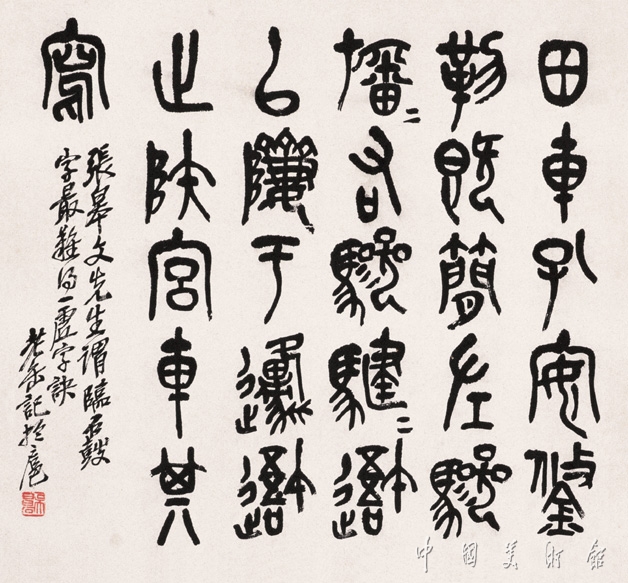 田車孔安鋚
勒既簡左驂
旛二右驂騝二䢒
㠯隮于邍䢒
止陕宮車其
寫
張皋文先生謂臨石鼓
字最難得一虛字訣
老缶記於扈
中國美術館